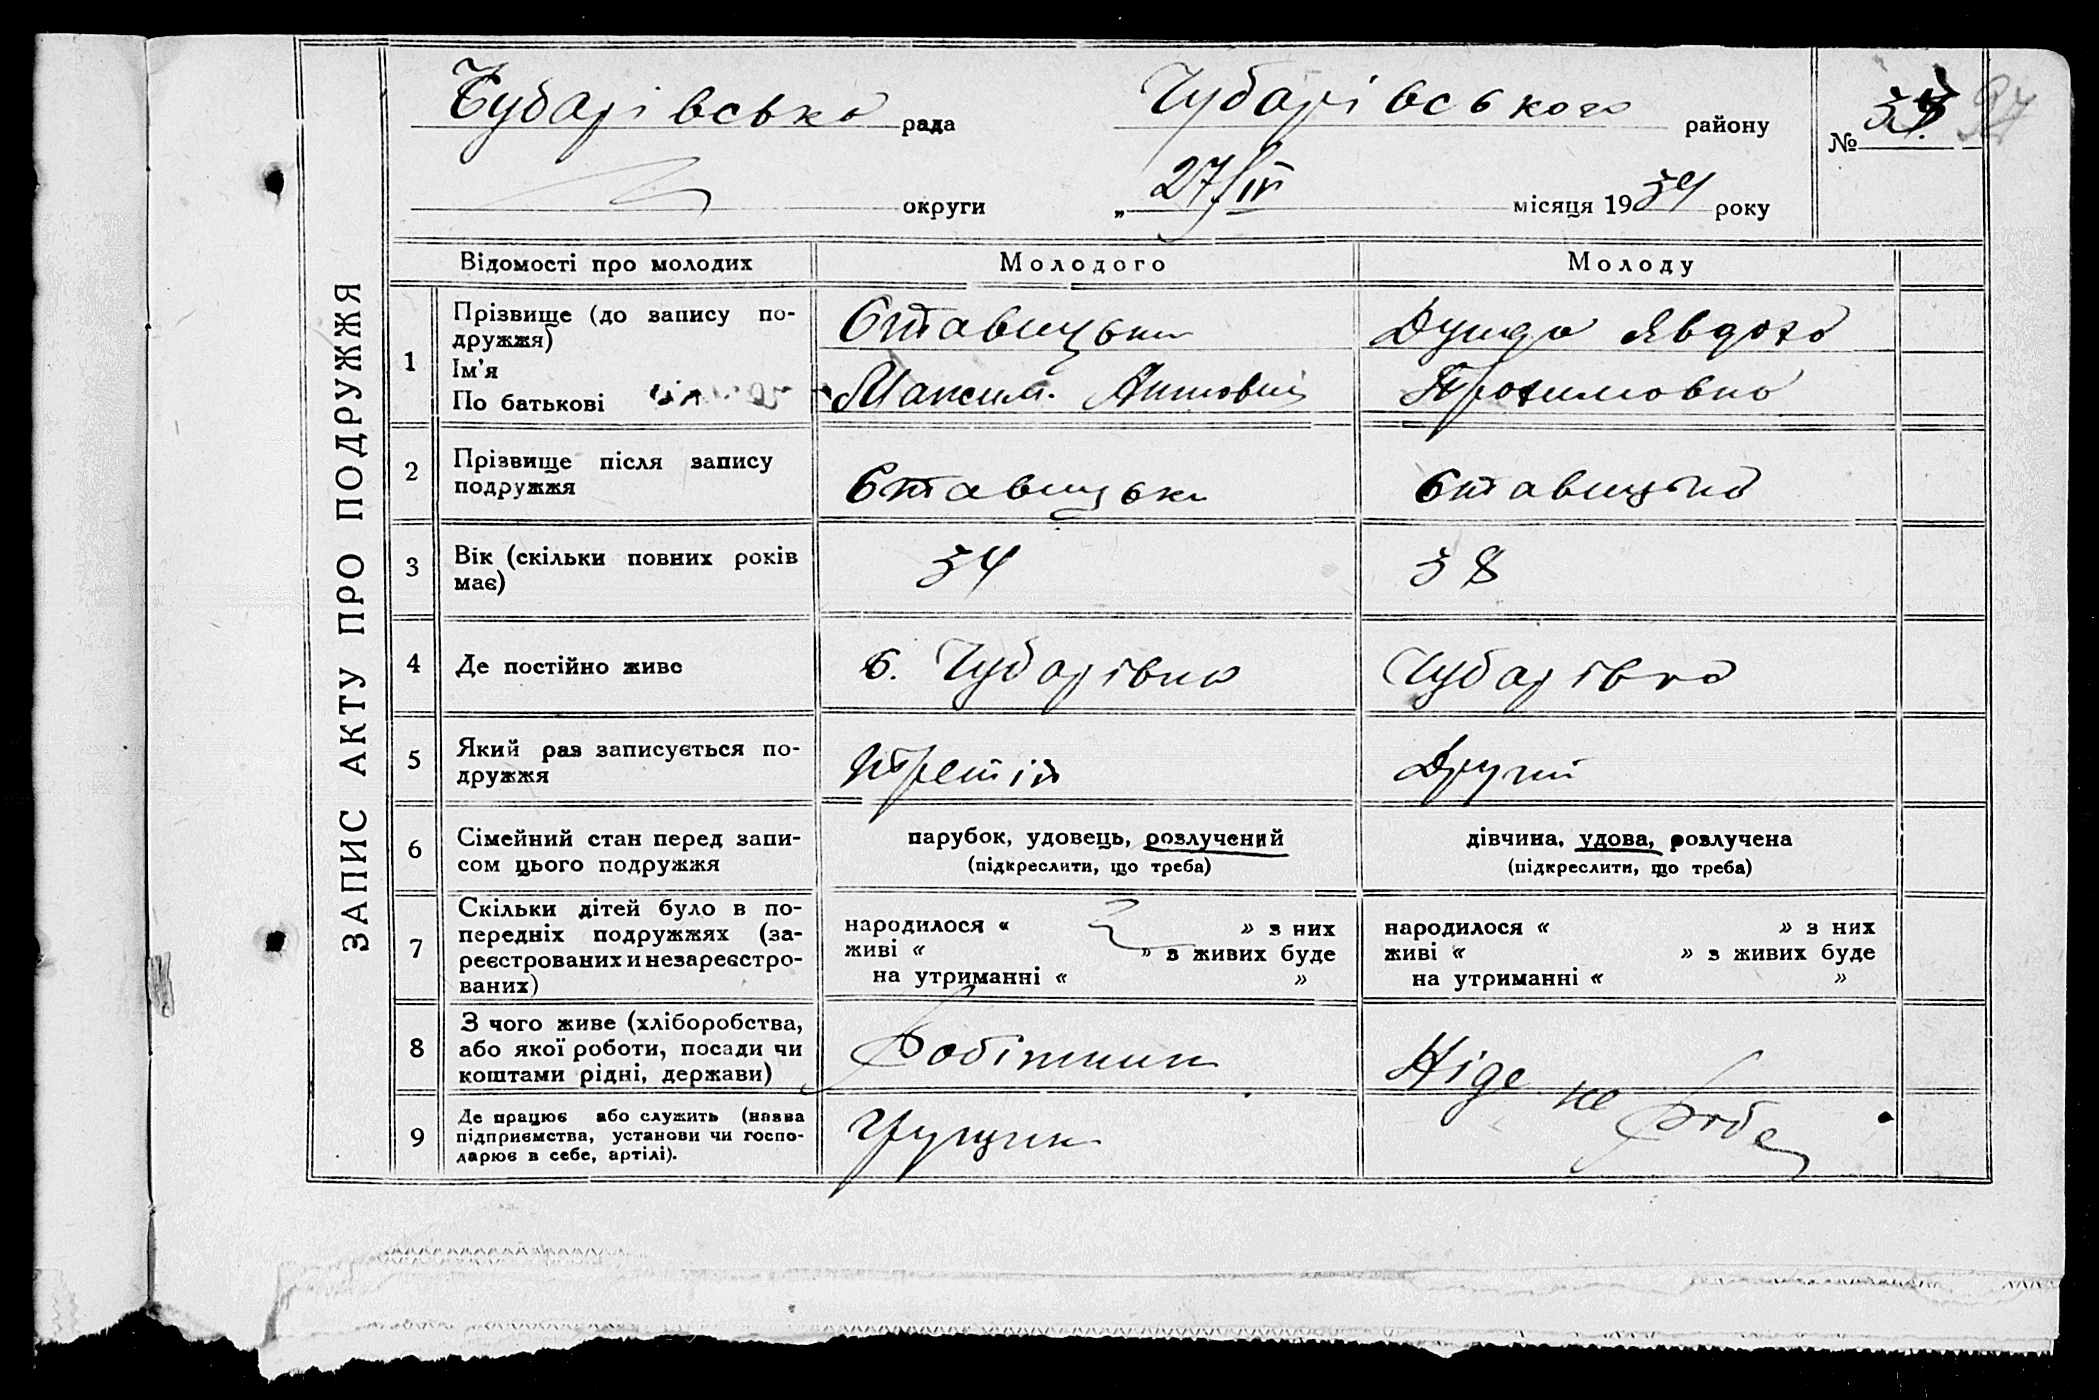 ЗАПИС АКТУ ПРО ПОДРУЖЖЯ
Чубарівська рада Чубарівського району №
округи „ 27/IV місяця 1934 року
Відомості про молодих Молодого Молоду
1 Прізвище (до запису подружжя) Ставицьки Дунда Явдоха
Ім'я
По батькові Максим. Антові Трохимовна
2 Прізвище після запису подружжя Ставицьки Ставицька
3 Вік (скільки повних років має) 34 38
4 Де постійно живе с. Чубарівка Чубарівка
5 Який раз записується подружжя Третій Другий
6 Сімейний стан перед записом цього подружжя парубок, удовець, розлучений дівчина, удова, розлучена
(підкреслити, що треба) (підкреслити, що треба)
7 Скільки дітей було в попередніх подружжях (зареєстрованих и незареєстрованих) народилося « » з них народилося « » з них
живі « » з живих буде живі « » з живих буде
на утриманні « » на утриманні « »
8 З чого живе (хліборобства, або якої роботи, посади чи коштами рідні, держави) Робітник Ніде не робе
9 Де працює або служить (назва підприємства, установи чи господарює в себе, артілі). Грущик